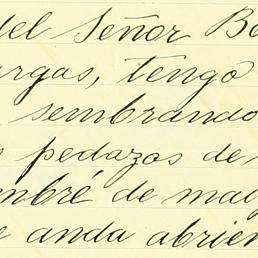 del Señor Be
urgas, tengo
sembrando
s pedazos de
mbré de may
e anda abrien